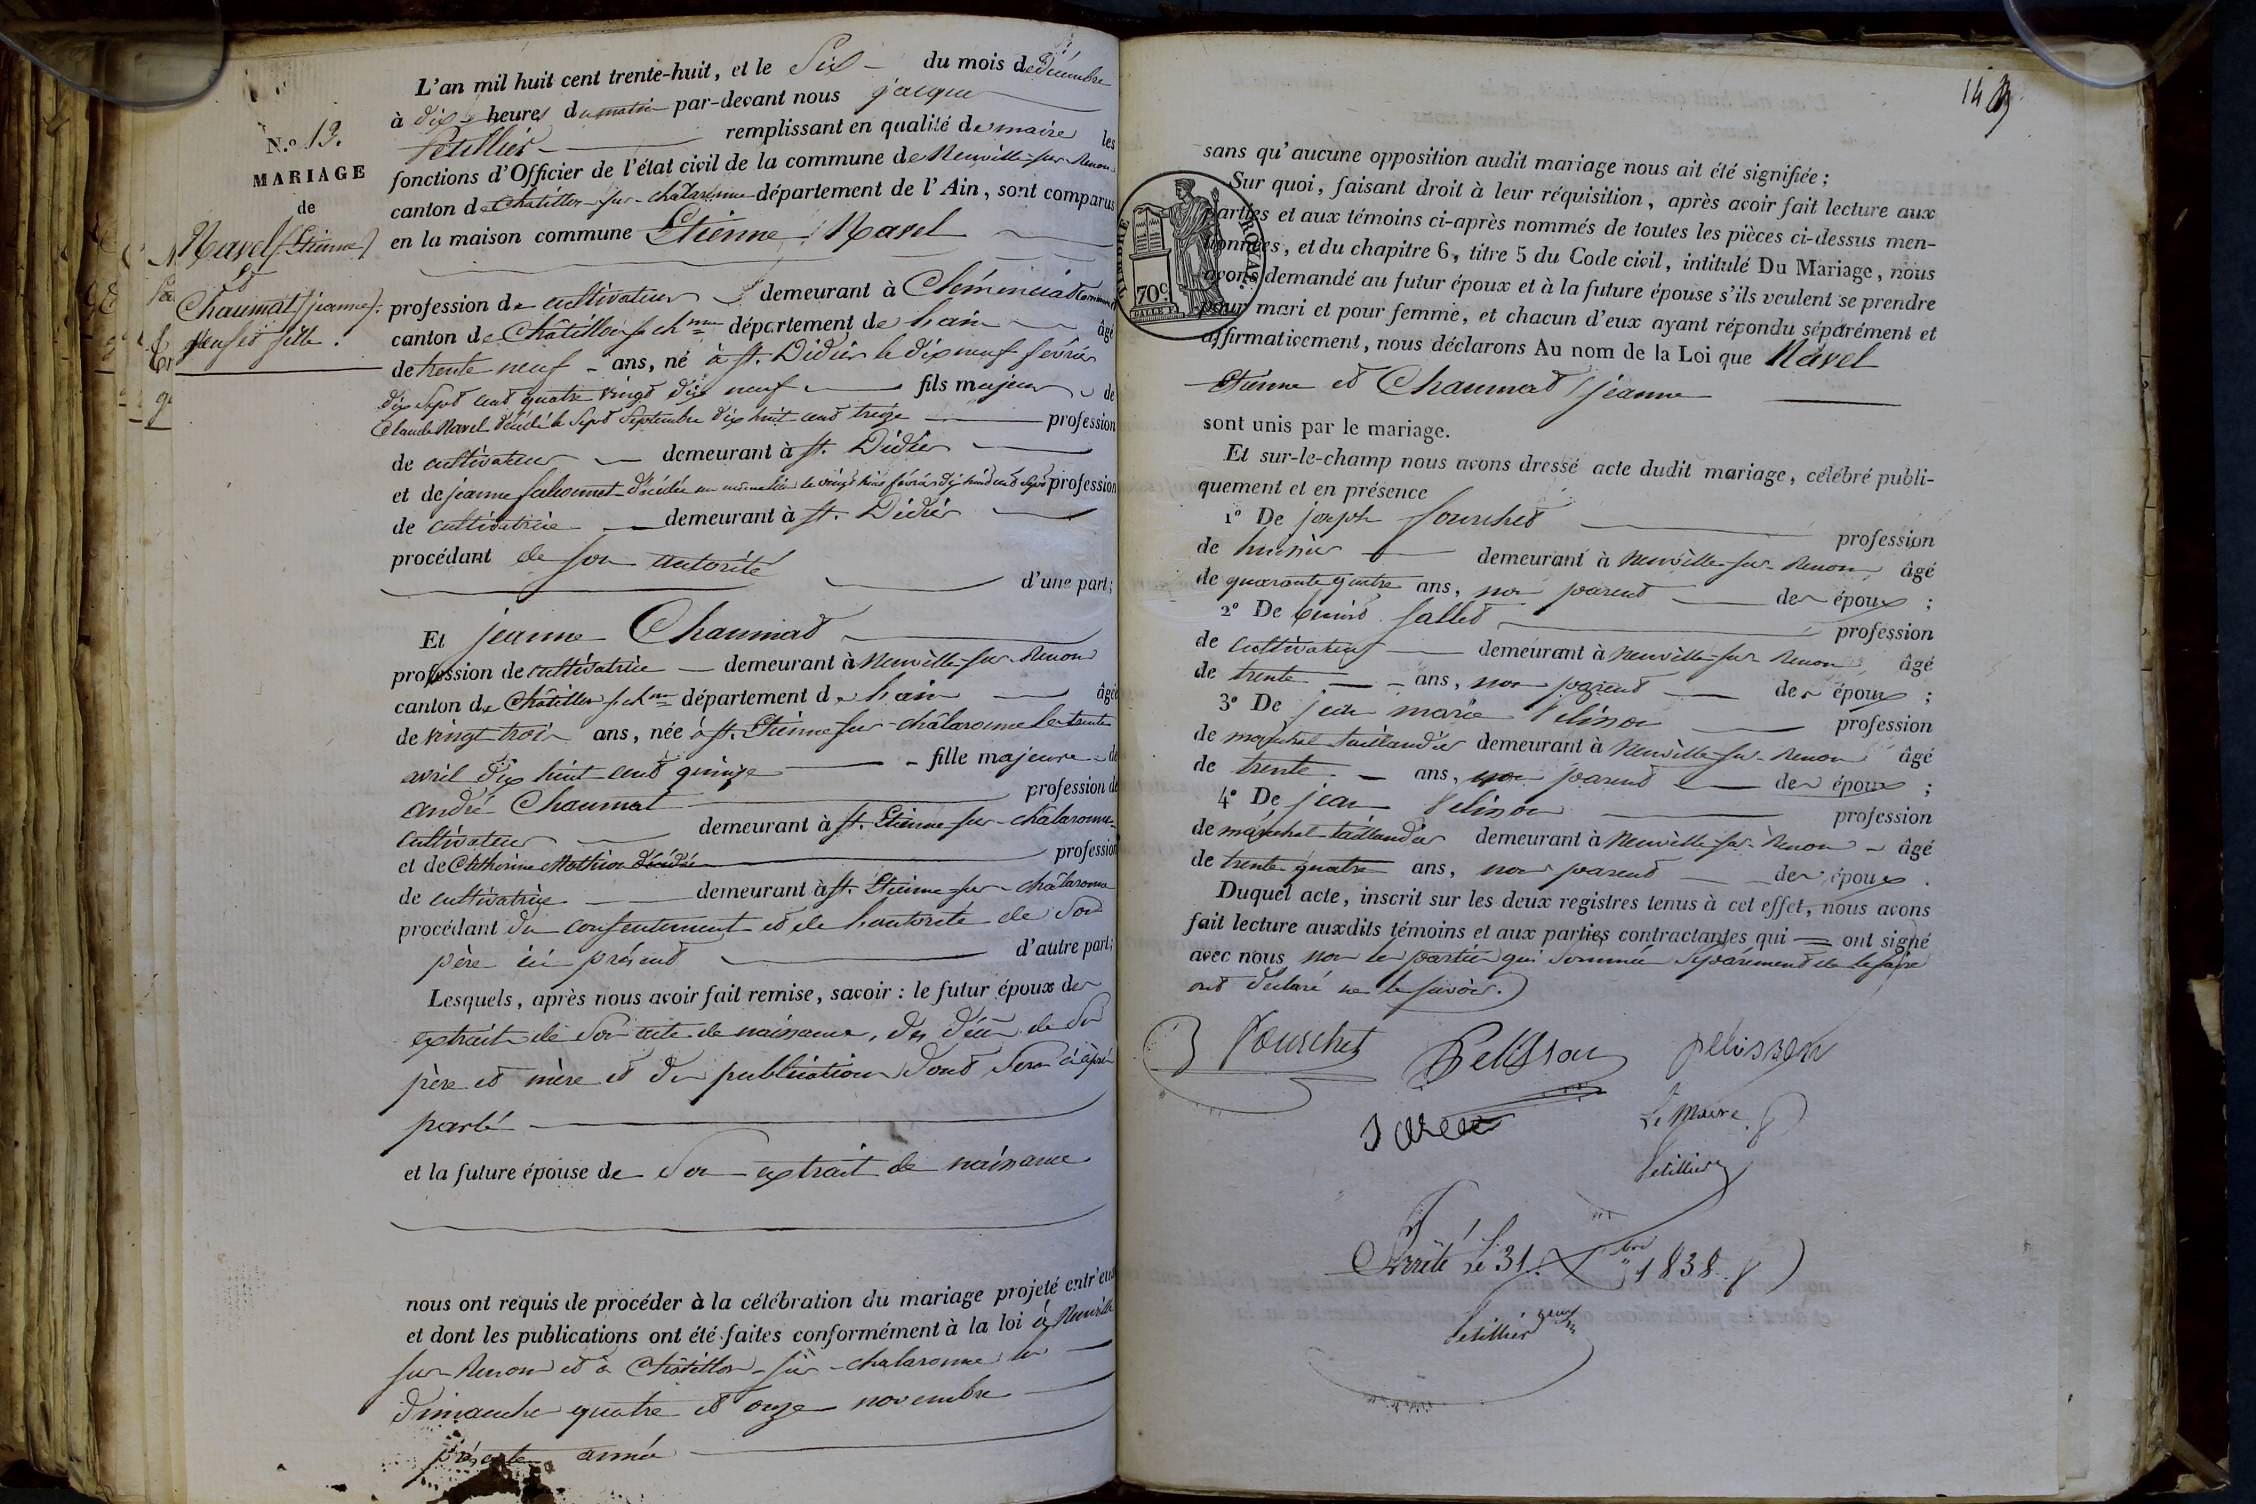 N.o 13.
MARIAGE
de
Navel (Etienne)
et
Chaumat (jeanne)
L'an mil huit cent trente-huit, et le Six du mois de décembre
à dix heures du matin par-devant nous jacques
Petillier remplissant en qualité de maire les
fonctions d'Officier de l'état civil de la commune de Neuville-sur-Renon
canton de Chatillon-sur-chalaronne département de l'Ain, sont comparus
en la maison commune Etienne Navel
profession de cultivateur demeurant à Cléménciat
canton de Châtillon s. ch.nne département de hain âgé
de trente neuf ans, né à st. Didier le dix neuf février
dix sept cent quatre vingt dix neuf fils majeur de
Claude Navel décédé le sept septembre dix huit cent treize profession
de cultivateur demeurant à st. Didier
et de jeanne décédée profession
de cultivatrice demeurant à st. Didier
procédant de son autorité
d'une part;
Et jeanne Chaumat
profession de cultivatrice demeurant à Neuville-sur-Renon
canton de Châtillon s. ch.nne département de hain âgée
de vingt trois ans, née à st. Etienne-sur-châlaronne le trente
avril dix huit cent quinze fille majeure de
andré Chaumat profession de
cultivateur demeurant à st. Etienne-sur-châlaronne
et de Catherine Mathion profession
de cultivatrice demeurant à st. Etienne-sur-châlaronne
procédant du consentement et de hautorité de son
père ici présent d'autre part;
Lesquels, après nous avoir fait remise, savoir: le futur époux des
extraits de son acte de naissance, des décès de son
père et mère et des publications dont sera ci après
parlé
et la future épouse de son extrait de naissance
nous ont requis de procéder à la célébration du mariage projeté entr'eux
et dont les publications ont été faites conformément à la loi à Neuville
sur-Renon et à Châtillon-sur-chalaronne les
dimanche quatre et onze novembre
présente année
14
TIMBRE ROYAL
70c.
sans qu'aucune opposition audit mariage nous ait été signifiée;
Sur quoi, faisant droit à leur réquisition, après avoir fait lecture aux
parties et aux témoins ci-après nommés de toutes les pièces ci-dessus men-
tionnées, et du chapitre 6, titre 5 du Code civil, intitulé Du Mariage, nous
avons demandé au futur époux et à la future épouse s'ils veulent se prendre
pour mari et pour femme, et chacun d'eux ayant répondu séparément et
affirmativement, nous déclarons Au nom de la Loi que Navel
Etienne et Chaumat jeanne
sont unis par le mariage.
Et sur-le-champ nous avons dressé acte dudit mariage, célébré publi-
quement et en présence
1o De joseph fourchet profession
de huissier demeurant à Neuville-sur-Renon âgé
de quarante quatre ans, non parent des époux;
2o De Benoit Sallet profession
de Cultivateur demeurant à Neuville-sur-Renon âgé
de trente ans, non parent des époux;
3o De jean marie Pelisson profession
de maréchal taillandier demeurant à Neuville-sur-Renon âgé
de trente ans, non parent des époux;
4o De jean Pelisson profession
de maréchal taillandier demeurant à Neuville-sur-Renon âgé
de trente quatre ans, non parent des époux.
Duquel acte, inscrit sur les deux registres tenus à cet effet, nous avons
fait lecture auxdits témoins et aux parties contractantes qui ont signé
avec nous non les parties qui sommées séparément de le faire
ont déclaré ne le savoir.
Fourchet Pelisson pelisson
Le Maire
Petillier
Arrêté le 31 Xbre 1838
Petillier